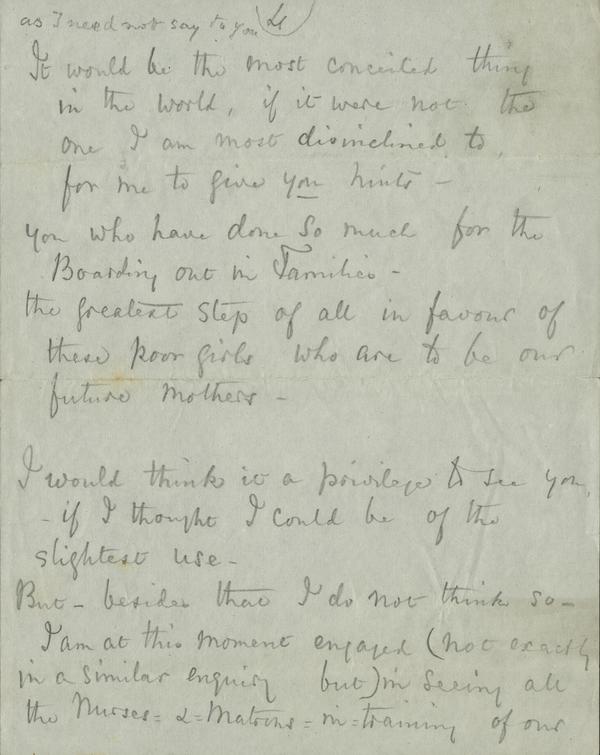 as I need not say to you
It would be the most conceited thing
in the world, if it were not the
one I am most disinclined to,
for me to give you hints -
you who have done so much for the
Boarding out in Families -
the greatest step of all in favour of
these poor girls who are to be our
future mothers -
I would think it a privilege to see you,
- if I thought I could be of the
slightest use -
But - besides that I do not think so -
I am at this moment engaged (not exactly
in a similar enquiry but) in seeing all
the Nurses = & = Matrons = in = training of our